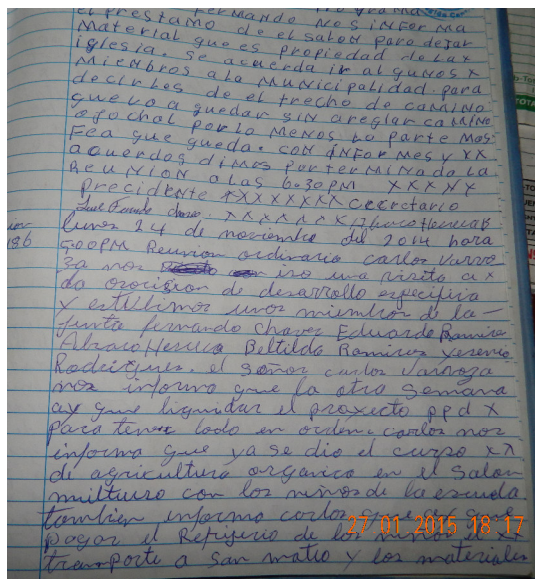 Fernando nos informa
el prestamo de el salon para dejar
Material que es propiedad de la x
iglesia. se acuerda ir algunos x
Miembros a la Municipalidad para
decirles de el trecho de camino
que va a quedar sin areglar camino
ojochal por lo menos la parte mas
Fea que queda. con informes y xx
acuerdos dimos por terminada la
Reunion a las 6:30 PM xxxxx
precidente xxxxxxxx cecretario
xxxxxxx
lunes 24 de noviembre del 2014 hora
186 500PM Reunion ordinaria carlos varro
za nos iso una visita a x
da de desarrollo especifica
y estubimos unos miembros de la –
junta fernando chaves Eduardo Ramirez
Alvaro Herrera Beltilda Ramires Yesenia
Rodrigues. el señor carlos Varroza
nos informa que la otra semana
ay que liquidar el proxecto ppd x
para tener todo en orden. carlos nos
informa que ya se dio el curso xx
de agricultura organica en el salon
miltiuso con los niños de la escuela
tambien informo carlos que ay que
pagar el Refrijerio de los niños el xx
transporte a san mateo y los materiales
27/01/2015 18:17